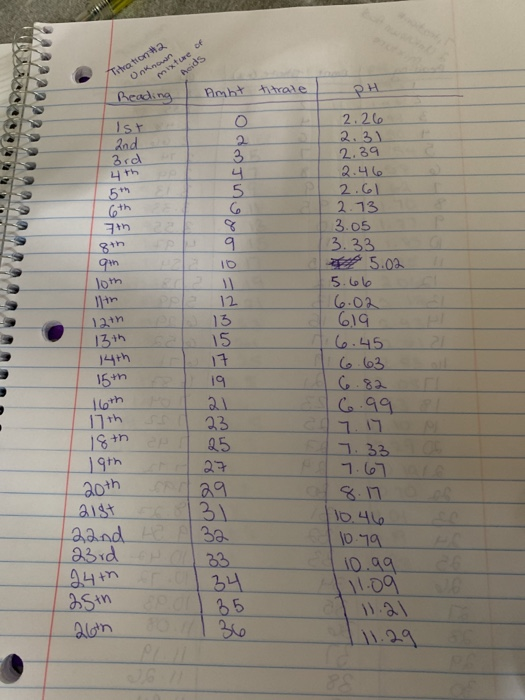 Titration #2
Unknown
mixture of
Acids
Reading Amnt titrate PH
1st 0 2.26
2nd 2 2.31
3rd 3 2.39
4th 4 2.46
5th 5 2.61
6th 6 2.73
7th 8 3.05
8th 9 3.33
9th 10 5.02
10th 11 5.66
11th 12 6.02
12th 13 6.19
13th 15 6.45
14th 17 6.63
15th 19 6.82
16th 21 6.99
17th 23 7.17
18th 25 7.33
19th 27 7.67
20th 29 8.17
21st 31 10.46
22nd 32 10.79
23rd 33 10.99
24th 34 11.09
25th 35 11.21
26th 36 11.29